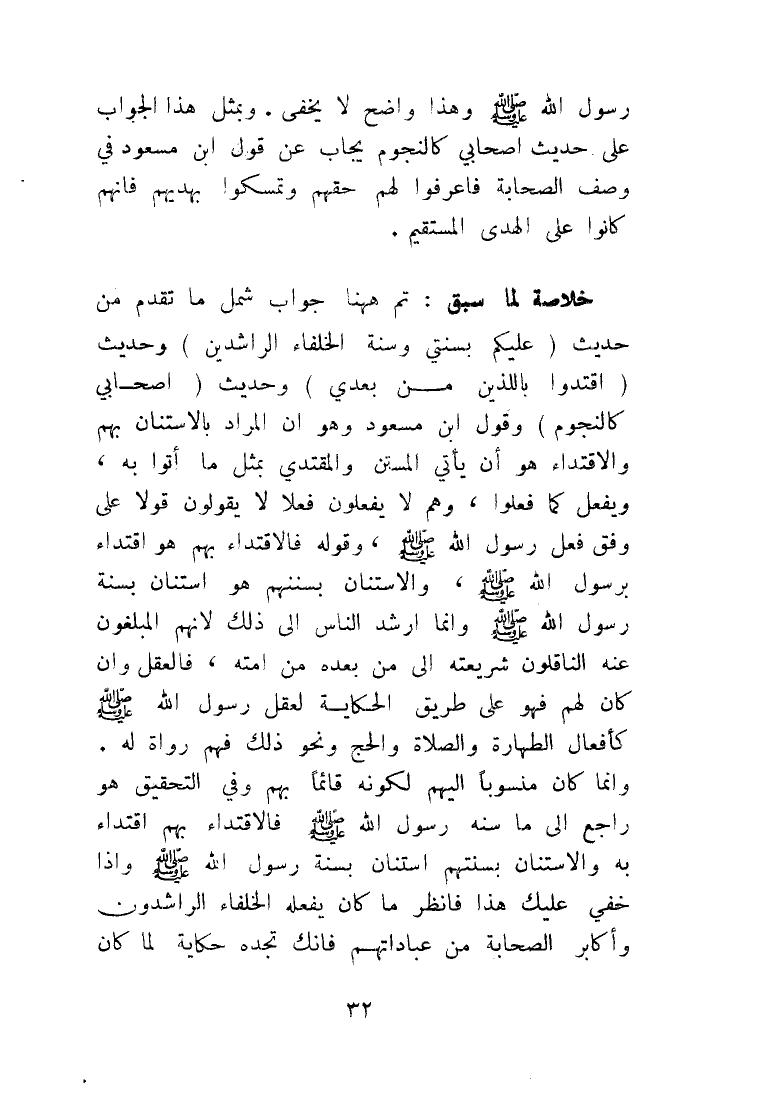 رسول الله ﷺ وهذا واضح لا يخفى . وبمثل هذا الجواب
على حديث اصحابي كالنجوم يجاب عن قول ابن مسعود في
وصف الصحابة فاعرفوا لهم حقهم وتمسكوا بهديهم فانهم
كانوا على الهدى المستقيم .
خلاصة لما سبق : تم ههنا جواب شمل ما تقدم من
حديث ( عليكم بسنتي وسنة الخلفاء الراشدين ) وحديث
( اقتدوا باللذين مــن بعدي ) وحديث ( اصحـابي
كالنجوم ) وقول ابن مسعود وهو ان المراد بالاستنان بهم
والاقتداء هو أن يأتي المستن والمقتدي بمثل ما أتوا به ،
ويفعل كما فعلوا ، وهم لا يفعلون فعلا لا يقولون قولا على
وفق فعل رسول الله ﷺ ، وقوله فالاقتداء بهم هو اقتداء
برسول الله ﷺ ، والاستنان بسننهم هو استنان بسنة
رسول الله ﷺ وانما ارشد الناس الى ذلك لانهم المبلغون
عنه الناقلون شريعته الى من بعده من امته ، فالعقل وان
كان لهم فهو على طريق الحكايـة لعقل رسول الله ﷺ
كأفعال الطهارة والصلاة والحج ونحو ذلك فهم رواة له .
وانما كان منسوباً اليهم لكونه قائماً بهم وفي التحقيق هو
راجع الى ما سنه رسول الله ﷺ فالاقتداء بهم اقتداء
به والاستنان بسنتهم استنان بسنة رسول الله ﷺ واذا
خفي عليك هذا فانظر ما كان يفعله الخلفاء الراشدون
وأكابر الصحابة من عباداتهـم فانك تجده حكاية لما كان
٣٢